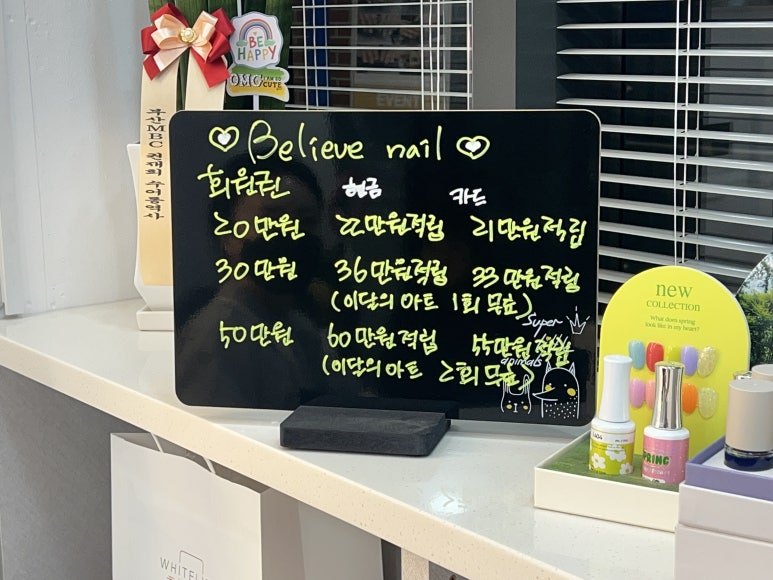 BE
HAPPY
OMG I AM SO
CUTE
EVENT
부산MBC 권재희 수어통역사
Believe nail
회원권 현금 카드
20만원 22만원적립 21만원적립
30만원 36만원적립 33만원적립
(이달의 아트 1회 무료)
50만원 60만원적립 55만원적립
(이달의 아트 2회 무료)
Super
animals
new
COLLECTION
What does spring
look like in my heart?
SPRING
WHITE